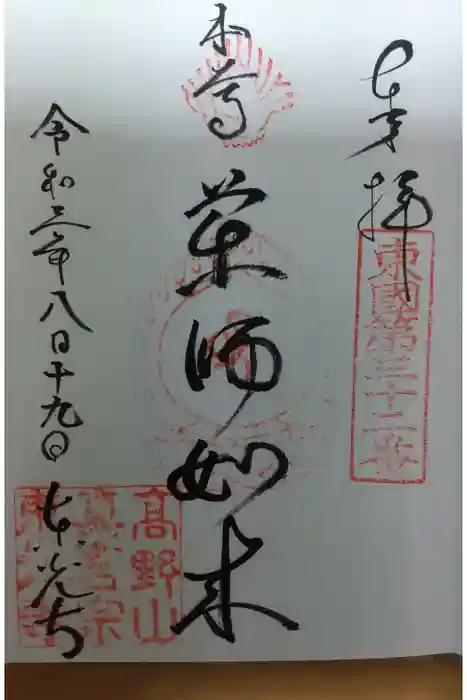 奉拝
東國第三十二番
本尊
薬師如来
令和三年八月十九日
東光寺
高野山
真言宗
東光寺